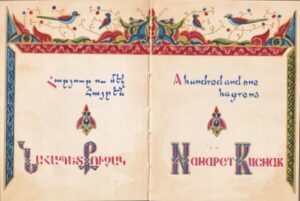 Հարյուր ու մէկ
Հայրէն
ՆԱՀԱՊԵՏ ՔՈՒՉԱԿ
A hundred and one
hayrens
NAHAPET KUCHAK